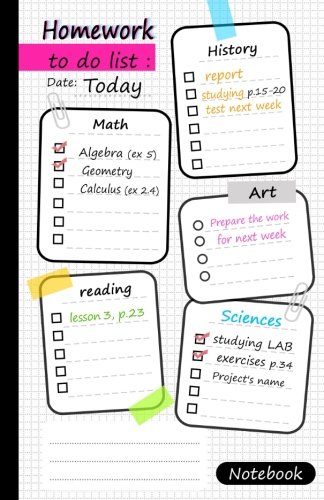 Homework
to do list :
Date: Today
History
report
studying p.15-20
test next week
Math
Algebra (ex 5)
Geometry
Calculus (ex 2.4)
Art
Prepare the work
for next week
reading
lesson 3, p.23
Sciences
studying LAB
exercises p.34
Project's name
Notebook